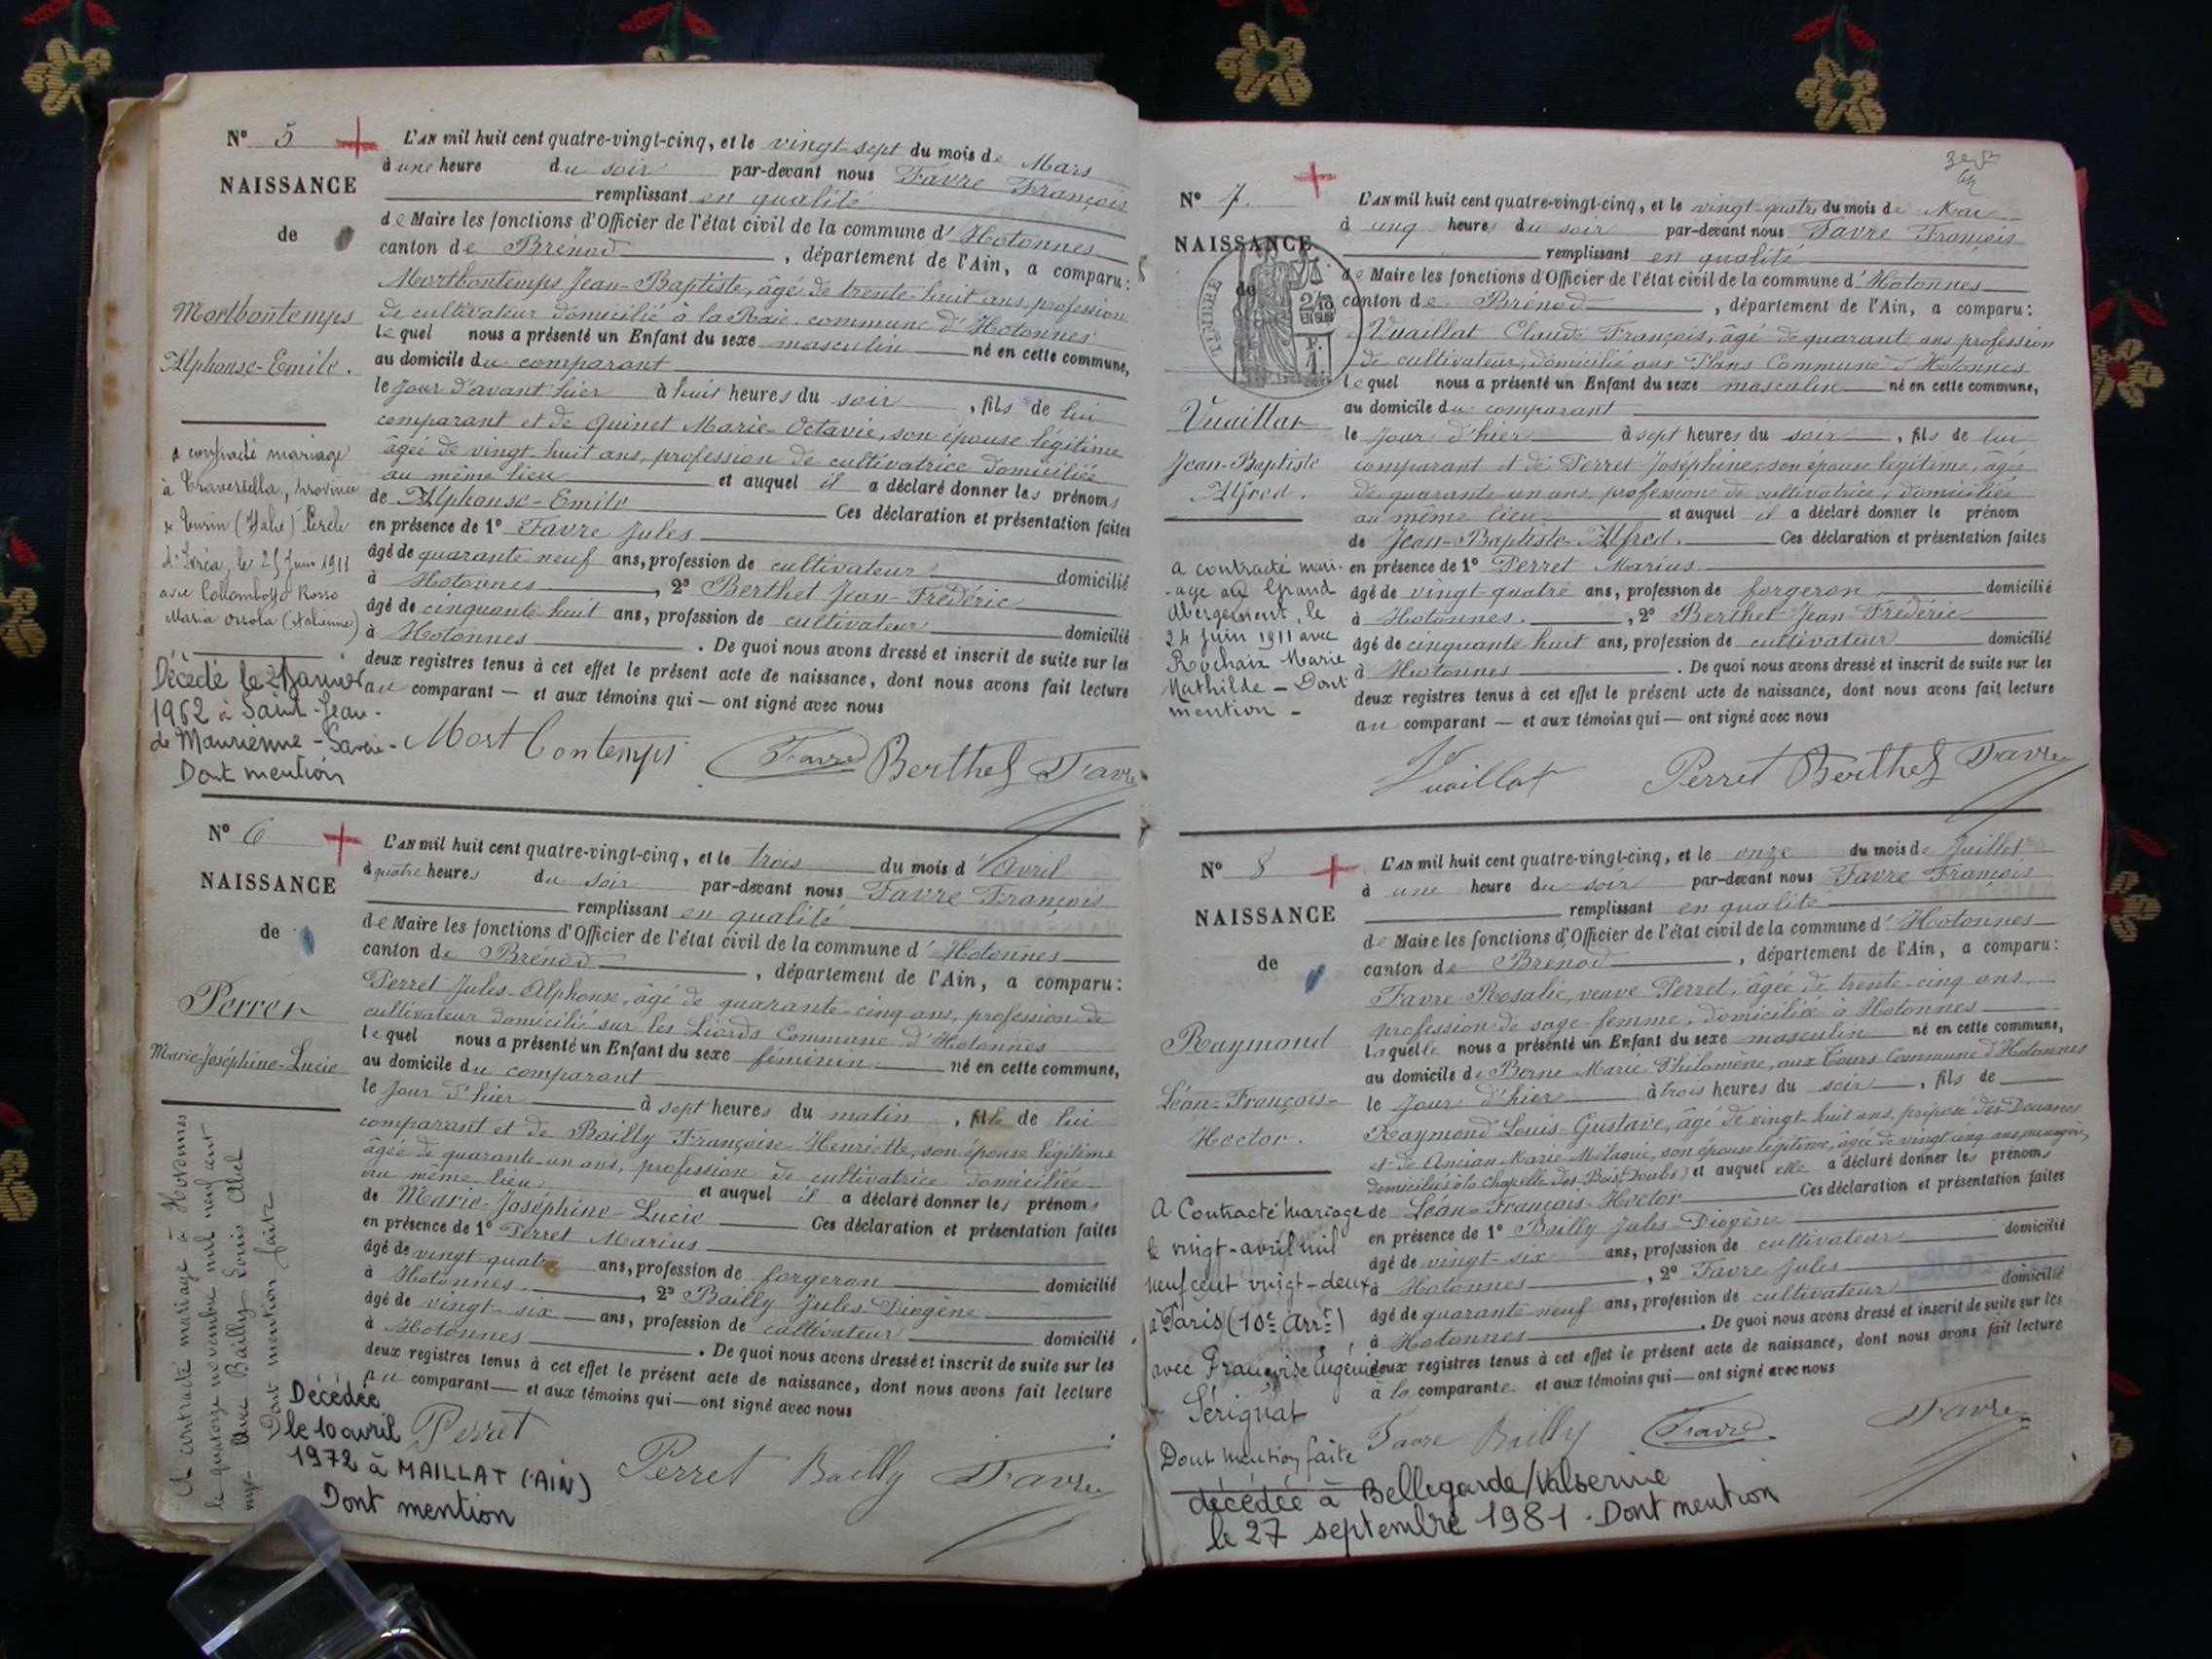 N° 5
NAISSANCE
de
Mortbontemps
Alphonse-Emile.
a contracté mariage
à Traversella, province
de Turin (Italie) Cercle
d'Ivréa, le 25 Juin 1911
avec
Maria Orsola (italienne)
Décédé le
1962 à Saint-Jean-
de Maurienne - Savoie -
Dont mention
L'AN mil huit cent quatre-vingt-cinq, et le vingt-sept du mois de Mars
à une heure du soir par-devant nous Favre François
remplissant en qualité
de Maire les fonctions d'Officier de l'état civil de la commune d'Hotonnes
canton de Brénod, département de l'Ain, a comparu:
Mortbontemps Jean-Baptiste, âgé de trente-huit ans, profession
de cultivateur domicilié à la Raie, commune d'Hotonnes
lequel nous a présenté un Enfant du sexe masculin né en cette commune,
au domicile du comparant
le jour d'avant hier à huit heures du soir, fils de lui
comparant et de Quinet Marie-Octavie, son épouse légitime
âgée de vingt-huit ans, profession de cultivatrice domiciliée
au même lieu et auquel il a déclaré donner les prénoms
de Alphonse-Emile Ces déclaration et présentation faites
en présence de 1° Favre Jules
âgé de quarante neuf ans, profession de cultivateur domicilié
à Hotonnes, 2° Berthet Jean-Frédéric
âgé de cinquante huit ans, profession de cultivateur domicilié
à Hotonnes. De quoi nous avons dressé et inscrit de suite sur les
deux registres tenus à cet effet le présent acte de naissance, dont nous avons fait lecture
au comparant — et aux témoins qui — ont signé avec nous
Mortbontemps Favre Berthet Favre
N° 6
NAISSANCE
de
Perret
Marie-Joséphine-Lucie
A contracté mariage à Hotonnes
le quatorze novembre mil neuf cent
avec Bailly Louis Abel
Dont mention faite
L'AN mil huit cent quatre-vingt-cinq, et le trois du mois d'Avril
à quatre heures du soir par-devant nous Favre François
remplissant en qualité
de Maire les fonctions d'Officier de l'état civil de la commune d'Hotonnes
canton de Brénod, département de l'Ain, a comparu:
Perret Jules-Alphonse, âgé de quarante-cinq ans, profession de
cultivateur domicilié sur les Liards Commune d'Hotonnes
lequel nous a présenté un Enfant du sexe féminin né en cette commune,
au domicile du comparant
le jour d'hier à sept heures du matin, fille de lui
comparant et de Bailly Françoise-Henriette, son épouse légitime
âgée de quarante-un ans, profession de cultivatrice domiciliée
au même lieu et auquel il a déclaré donner les prénoms
de Marie-Joséphine-Lucie Ces déclaration et présentation faites
en présence de 1° Perret Marius
âgé de vingt quatre ans, profession de forgeron domicilié
à Hotonnes, 2° Bailly Jules Diogène
âgé de vingt-six ans, profession de cultivateur domicilié
à Hotonnes. De quoi nous avons dressé et inscrit de suite sur les
deux registres tenus à cet effet le présent acte de naissance, dont nous avons fait lecture
au comparant — et aux témoins qui — ont signé avec nous
Décédée
le 10 avril
1972 à MAILLAT (AIN)
Dont mention
Perret Perret Bailly Favre
N° 7.
NAISSANCE
de
TIMBRE
Vuaillat
Jean-Baptiste
Alfred.
a contracté mari-
-age au Grand
Abergement, le
24 Juin 1911 avec
Rochaix Marie
Mathilde - Dont
mention -
L'AN mil huit cent quatre-vingt-cinq, et le vingt-quatre du mois de Mai
à cinq heures du soir par-devant nous Favre François
remplissant en qualité
de Maire les fonctions d'Officier de l'état civil de la commune d'Hotonnes
canton de Brénod, département de l'Ain, a comparu:
Vuaillat Claude François, âgé de quarante ans profession
de cultivateur, domicilié aux Plans Commune d'Hotonnes
lequel nous a présenté un Enfant du sexe masculin né en cette commune,
au domicile du comparant
le jour d'hier à sept heures du soir, fils de lui
comparant et de Perret Joséphine, son épouse légitime, âgée
de quarante un ans, profession de cultivatrice, domiciliée
au même lieu et auquel il a déclaré donner le prénom
de Jean-Baptiste-Alfred. Ces déclaration et présentation faites
en présence de 1° Perret Marius
âgé de vingt-quatre ans, profession de forgeron domicilié
à Hotonnes, 2° Berthet Jean Frédéric
âgé de cinquante huit ans, profession de cultivateur domicilié
à Hotonnes. De quoi nous avons dressé et inscrit de suite sur les
deux registres tenus à cet effet le présent acte de naissance, dont nous avons fait lecture
au comparant — et aux témoins qui — ont signé avec nous
Vuaillat Perret Berthet Favre
N° 8
NAISSANCE
de
Raymond
Léon-François-
Hector.
A Contracté mariage
le vingt-avril mil
neuf cent vingt-deux
à Paris (10e Arrt)
avec Françoise Eugénie
Sérignat
Dont mention faite
décédée à Bellegarde/Valserine
le 27 septembre 1981. Dont mention
L'AN mil huit cent quatre-vingt-cinq, et le onze du mois de Juillet
à une heure du soir par-devant nous Favre François
remplissant en qualité
de Maire les fonctions d'Officier de l'état civil de la commune d'Hotonnes
canton de Brénod, département de l'Ain, a comparu:
Favre Rosalie, veuve Perret, âgée de trente-cinq ans
profession de sage-femme, domiciliée à Hotonnes
laquelle nous a présenté un Enfant du sexe masculin né en cette commune,
au domicile de Berne Marie Philomène, aux Cours Commune d'Hotonnes
le jour d'hier à trois heures du soir, fils de
Raymond Louis-Gustave, âgé de vingt-huit ans, préposé des Douanes
et de Ancian Marie-Mélanie, son épouse légitime, âgée de vingt cinq ans, ménagère,
domiciliés à la Chapelle-des-Bois (Doubs) et auquel elle a déclaré donner les prénoms
de Léon-François-Hector Ces déclaration et présentation faites
en présence de 1° Bailly Jules-Diogène
âgé de vingt-six ans, profession de cultivateur domicilié
à Hotonnes, 2° Favre Jules
âgé de quarante neuf ans, profession de cultivateur domicilié
à Hotonnes. De quoi nous avons dressé et inscrit de suite sur les
deux registres tenus à cet effet le présent acte de naissance, dont nous avons fait lecture
à la comparante et aux témoins qui — ont signé avec nous
Favre Bailly Favre Favre